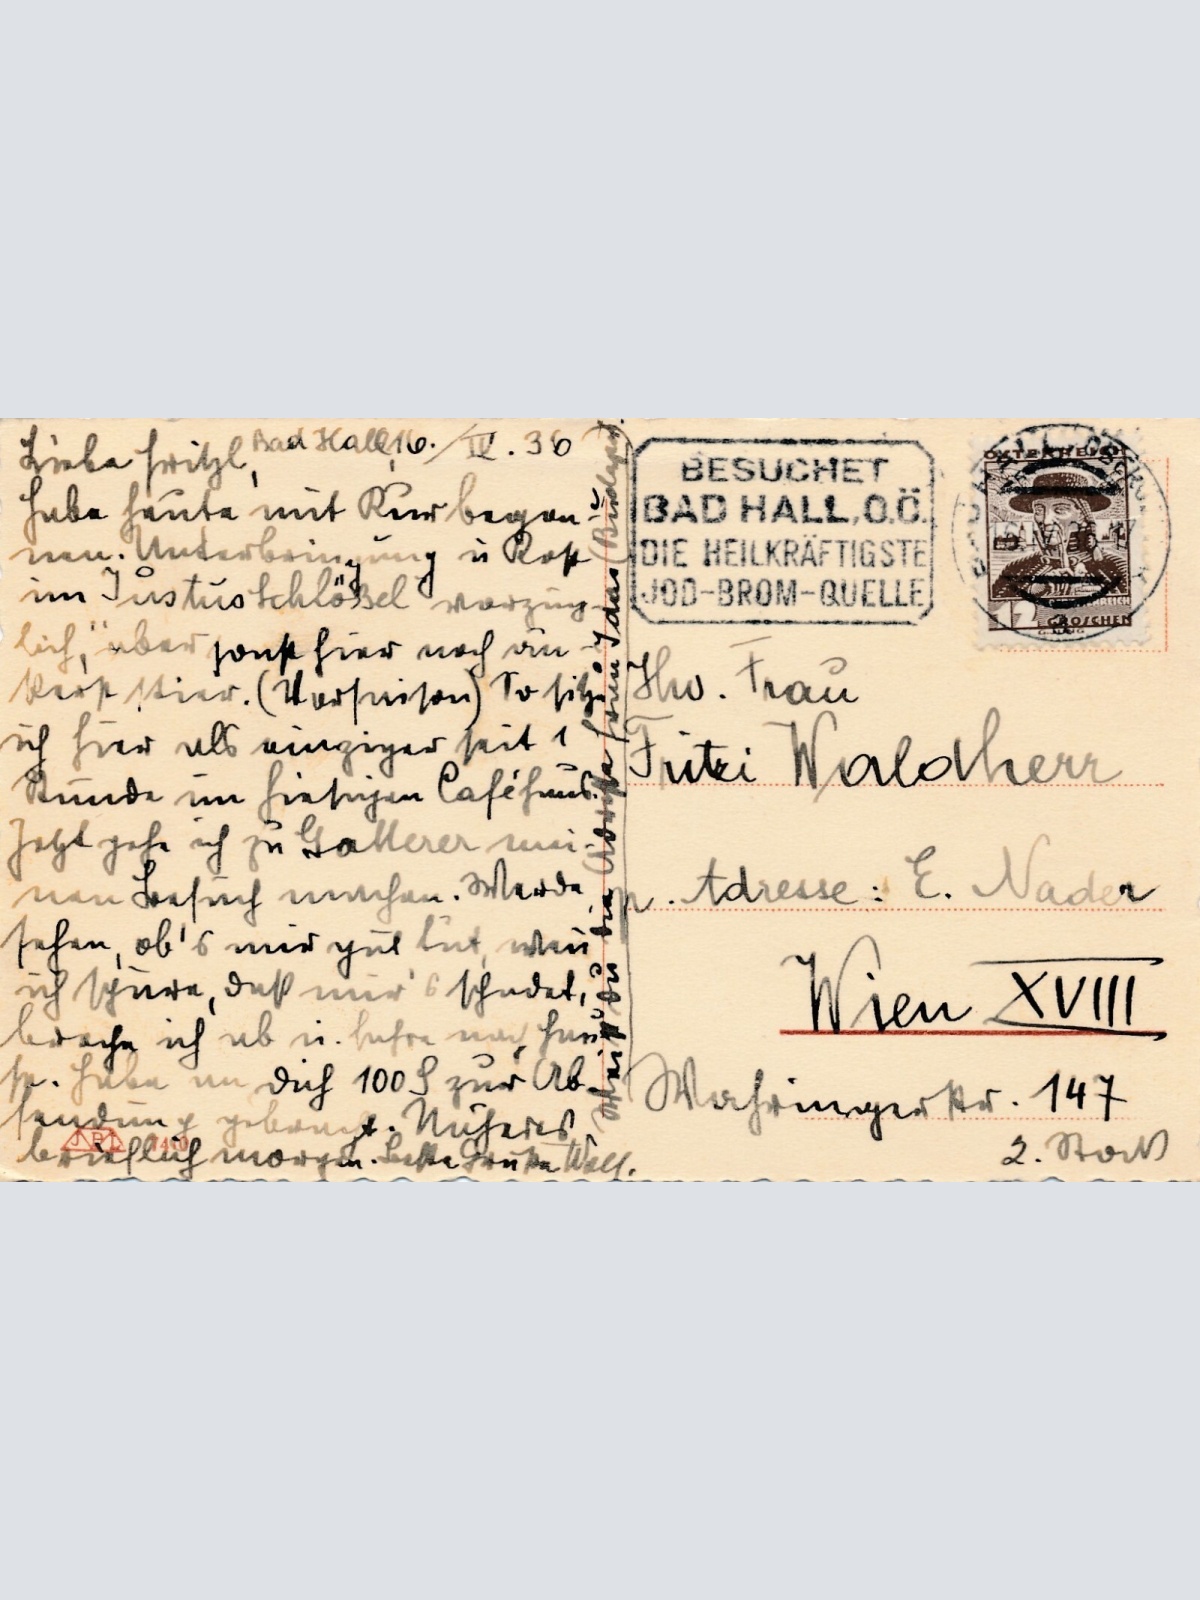 Bad Hall, 16./IV. 36
Liebe Fritzl,
habe heute mit Kur begon-
nen. Unterbringung u Kost
im Justusschlößel vorzüg-
lich, aber sonst hier noch äu-
ßerst stier. (Vorsaison) So sitze
ich hier als einziger seit 1
Stunde im hiesigen Caféhaus.
Jetzt gehe ich zu Gatterer mei-
nen Besuch machen. Werde
sehen, ob's mir gut tut, wenn
ich spüre, daß mir's schadet,
breche ich ab u. fahre nach Hau-
se. Habe an dich 100 S zur Ab-
sendung gebracht. Näheres
brieflich morgen. Beste Grüße
Weißt du die Adresse von Idas (Budapest)
BESUCHET
BAD HALL, O.Ö.
DIE HEILKRÄFTIGSTE
JOD-BROM-QUELLE
ÖSTERREICH
GROSCHEN
Frau
Fritzi Waldherr
p. Adresse: E. Nader
Wien XVIII
Währingerstr. 147
2. Stock